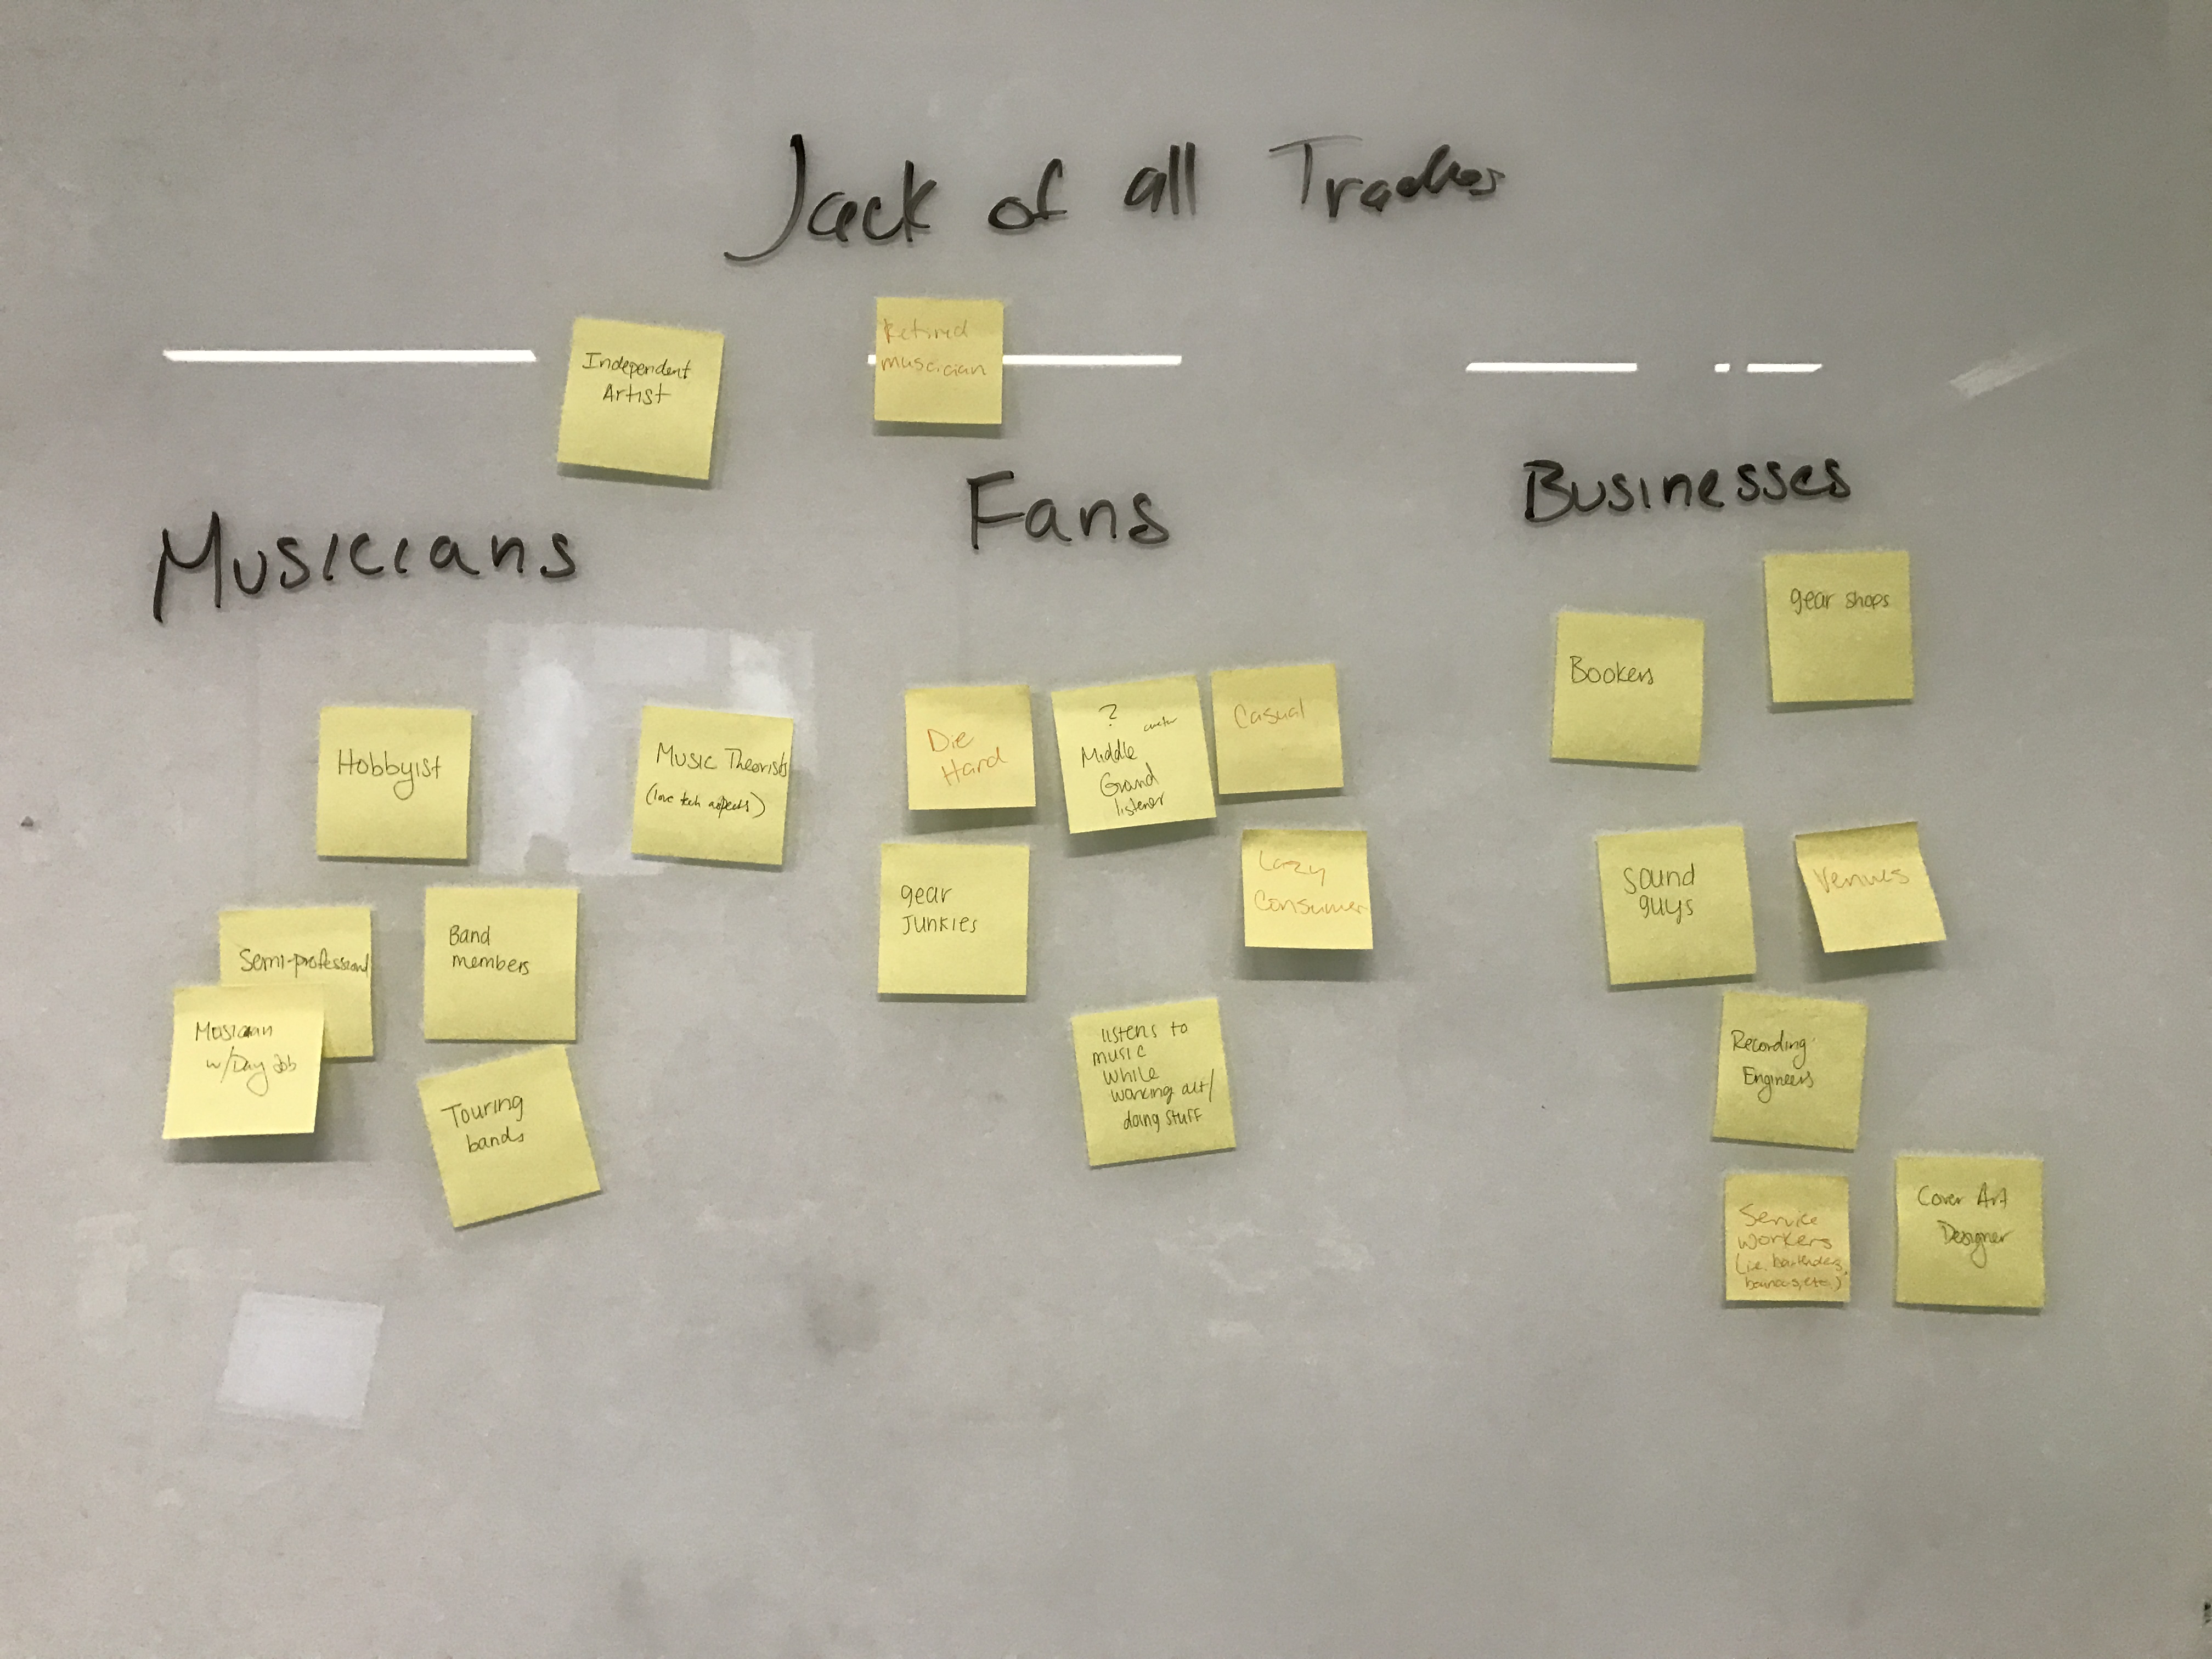 Jack of all Trades
Independent
Artist
Retired
muscician
Musicians
Fans
Businesses
Hobbyist
Music Theorists
(love tech aspects)
Semi-professional
Musician
w/Day Job
Band
members
Touring
bands
Die
Hard
?
Middle
Grand
listener
Casual
gear
Junkies
Lazy
Consumer
listens to
music
while
working out/
doing stuff
Bookers
gear shops
sound
guys
Venues
Recording
Engineers
Service
workers
(i.e. bartenders,
bouncers, etc.)
Cover Art
Designer